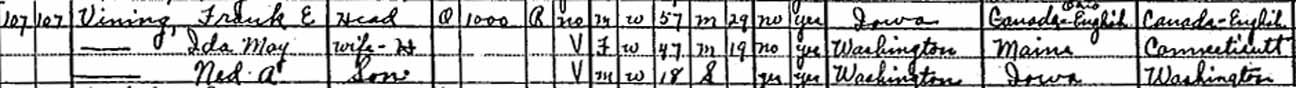 107 107 Vining, Frank E Head O 1000 R no M W 57 M 29 no yes Iowa Canada-English Canada-English
—— , Ida May wife-H V F W 47 M 19 no yes Washington Maine Connecticutt
—— Ned A Son V M W 18 S yes yes Washington Iowa Washington